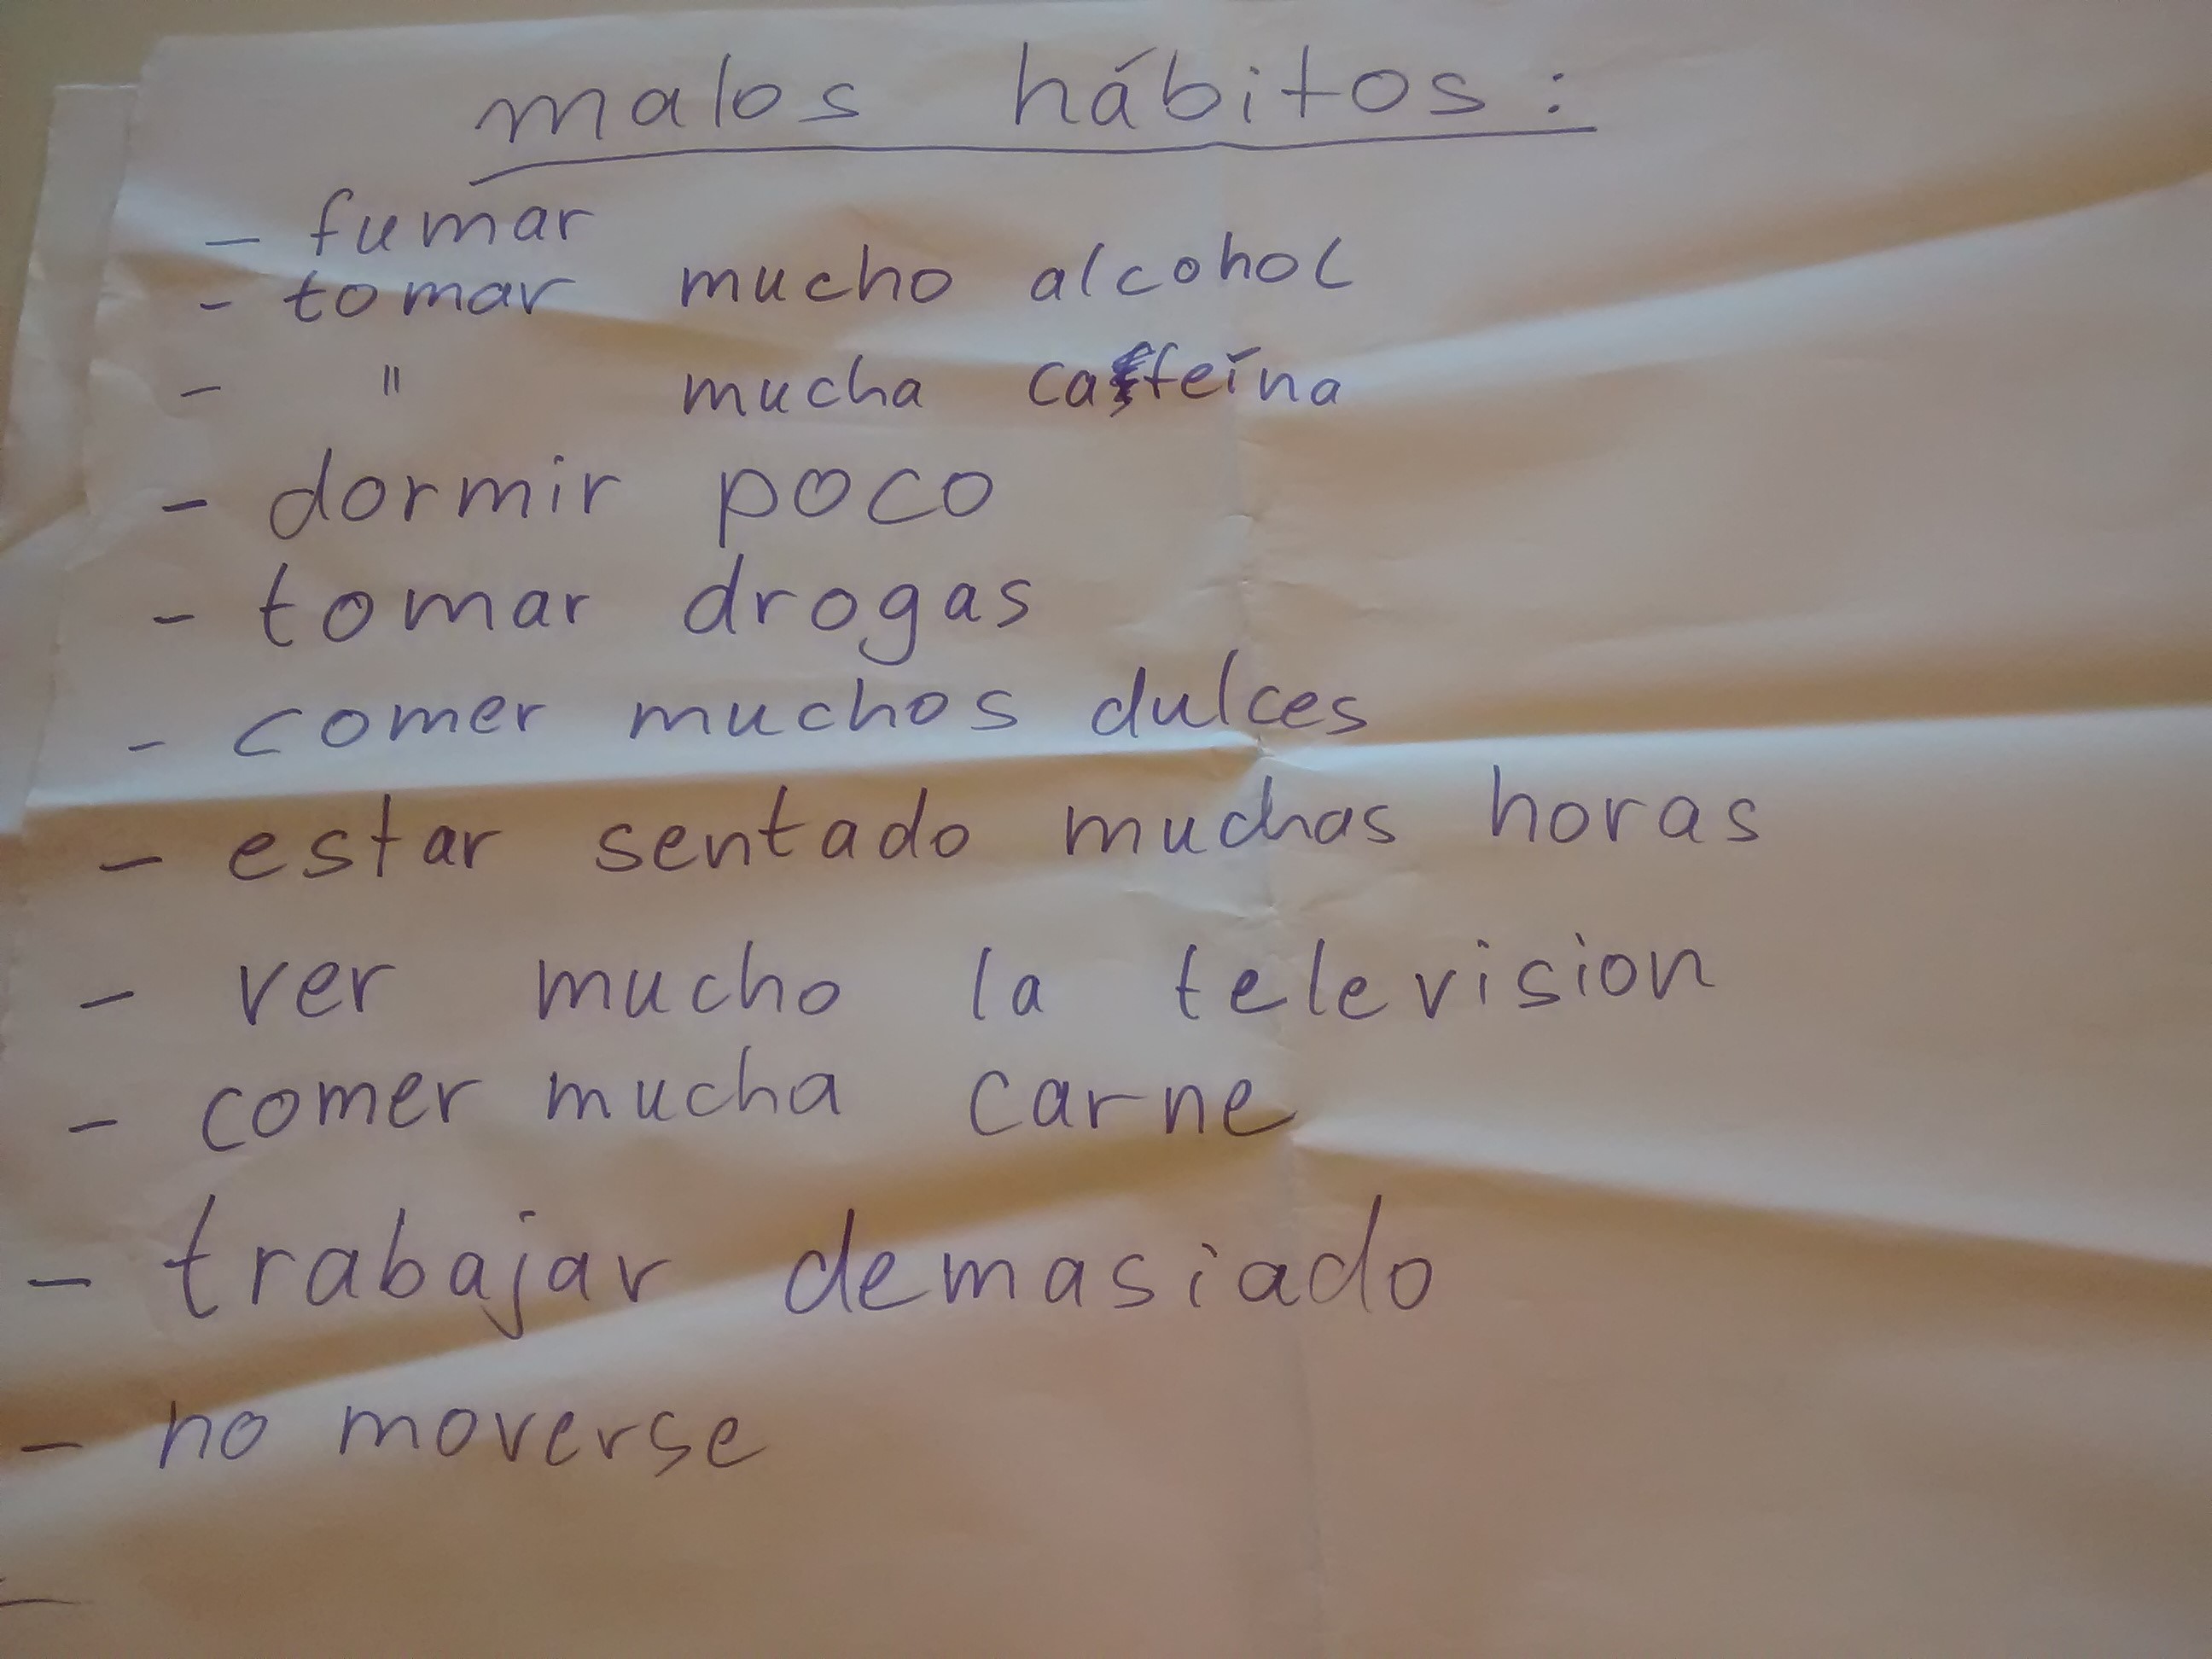 malos hábitos:
- fumar
- tomar mucho alcohol
- " mucha cafeína
- dormir poco
- tomar drogas
- comer muchos dulces
- estar sentado muchas horas
- ver mucho la television
- comer mucha carne
- trabajar demasiado
- no moverse
-